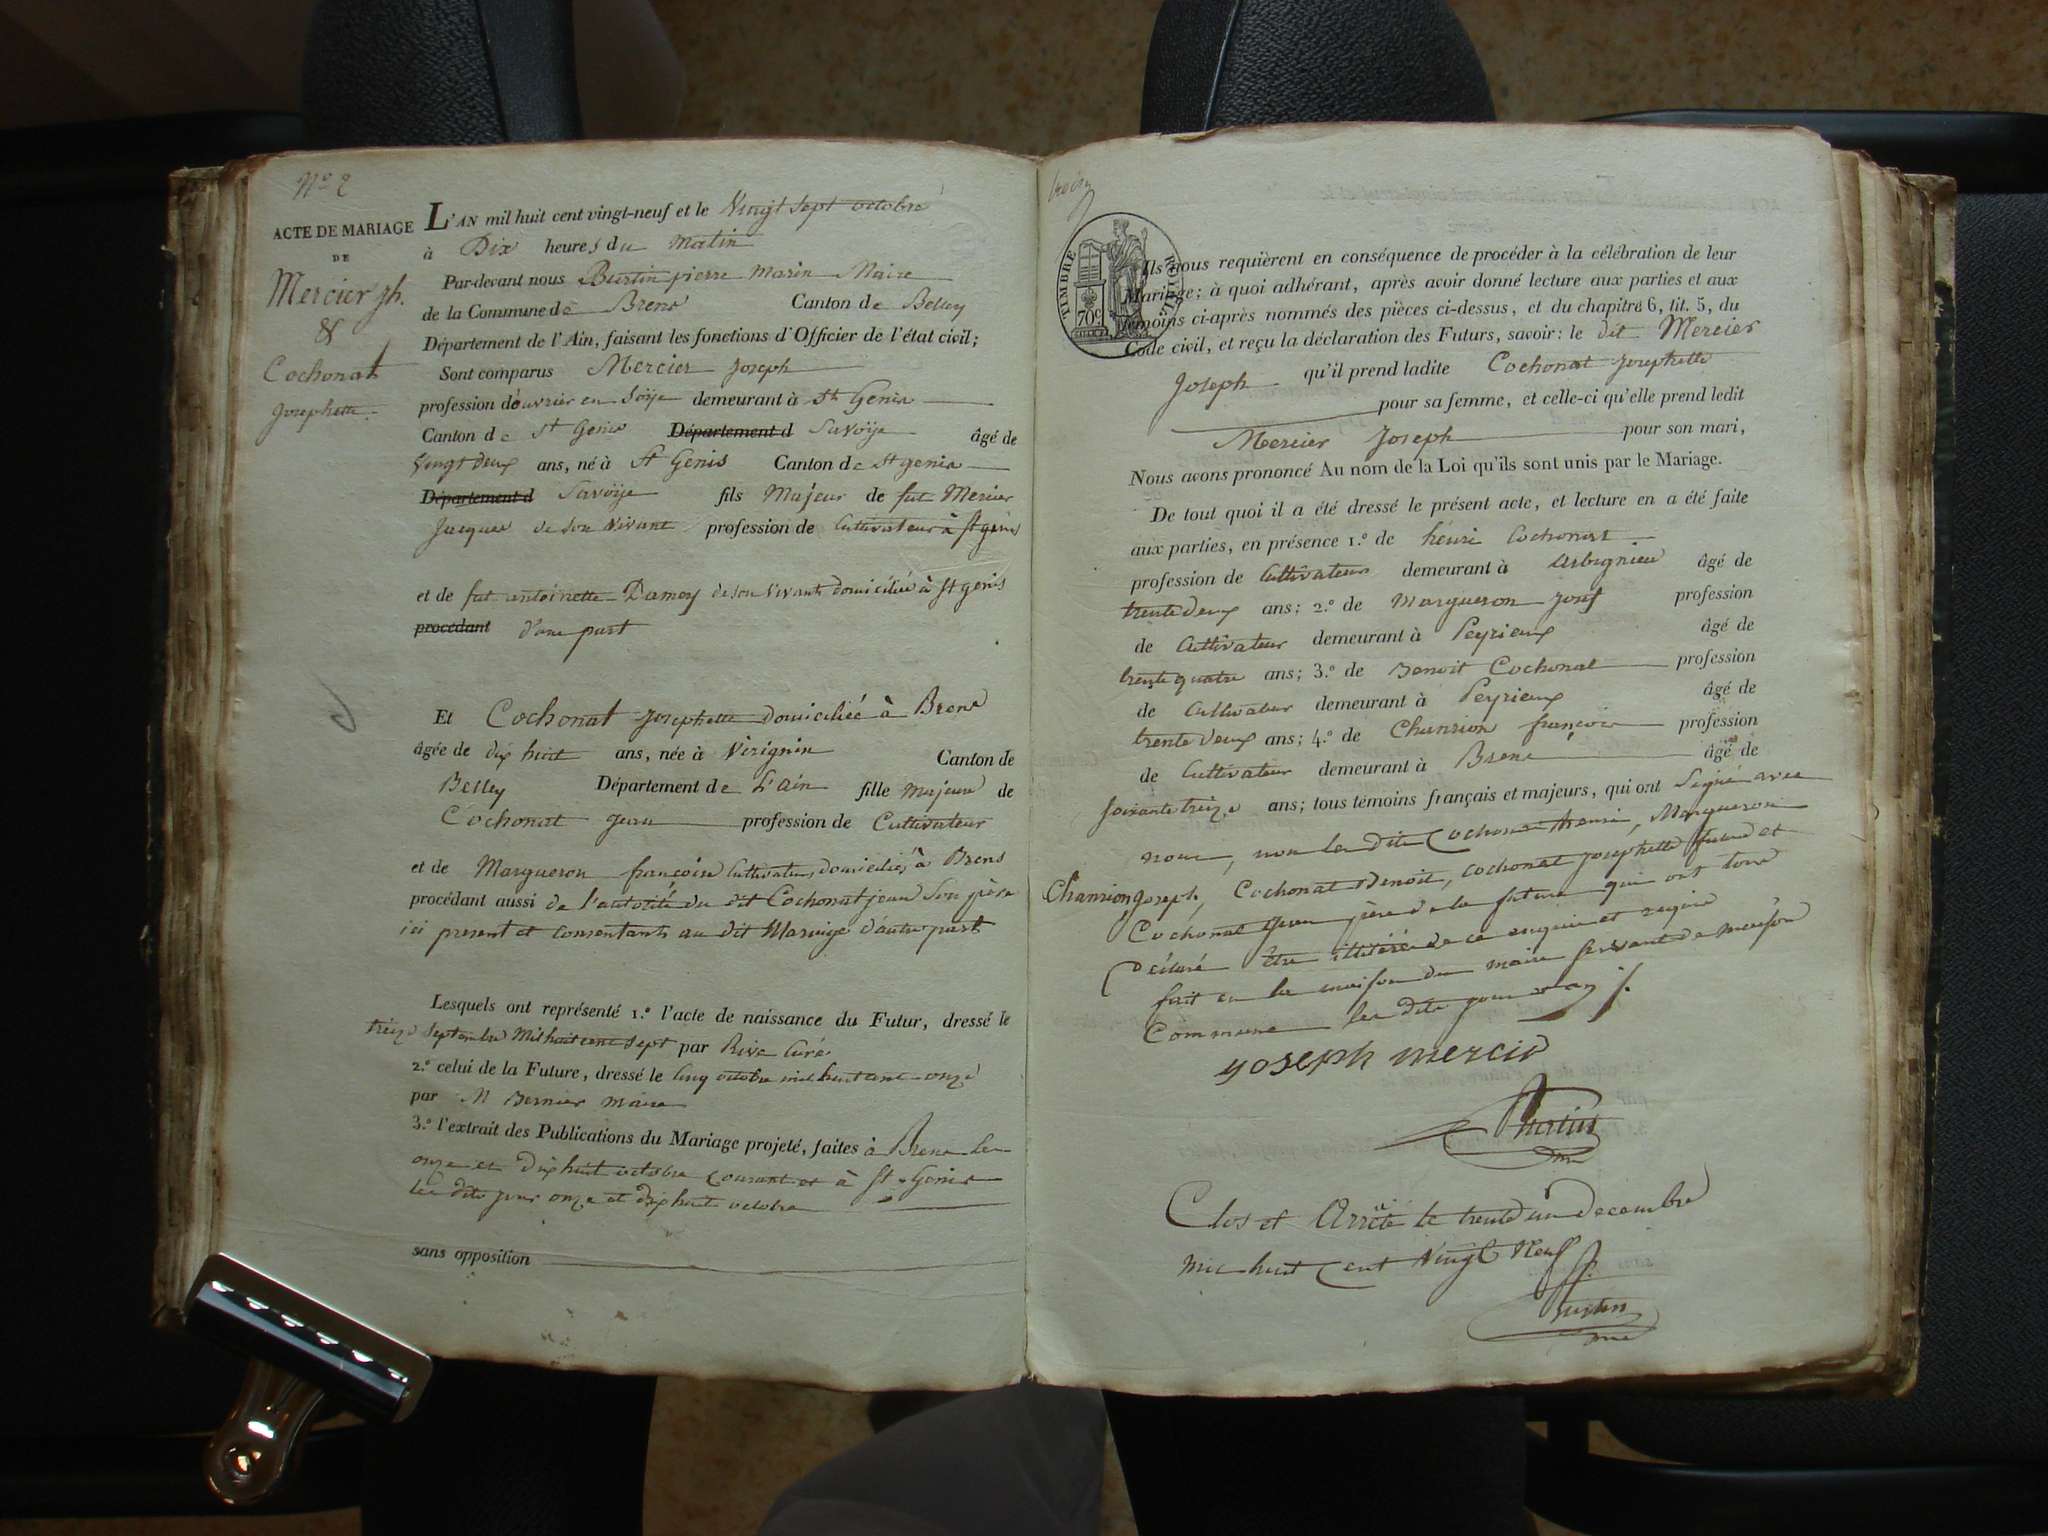 N.o 2
ACTE DE MARIAGE
DE
Mercier jh.
&
Cochonat
Josephette
L'AN mil huit cent vingt-neuf et le Vingt sept octobre
à Dix heures du Matin
Par-devant nous Burtin pierre Marin Maire
de la Commune de Brens Canton de Belley
Département de l'Ain, faisant les fonctions d'Officier de l'état civil;
Sont comparus Mercier Joseph
profession d'ouvrier en Soije demeurant à St Genis
Canton de St Genis Département d Savoije âgé de
Vingt deux ans, né à St Genis Canton de St genis
Département d Savoije fils Majeur de fut Mercier
Jacques de son vivant profession de Cultivateur à St genis
et de fut antoinette Damey de son vivant domiciliée à St genis
procédant d'une part
Et Cochonat Josephette domiciliée à Brens
âgée de dix huit ans, née à Virignin Canton de
Belley Département de L'ain fille majeure de
Cochonat jean profession de Cultivateur
et de Margueron françoise Cultivateurs domiciliés à Brens
procédant aussi de l'autorité du dit Cochonat jean Son père
ici present et consentant au dit Mariage d'autre part
Lesquels ont représenté 1.o l'acte de naissance du Futur, dressé le
treize septembre mil huit cent sept par Rive Curé
2.o celui de la Future, dressé le Cinq octobre mil huit cent onze
par M Bernier maire
3.o l'extrait des Publications du Mariage projeté, faites à Brens les
onze et dix huit octobre Courant et à St Genis
les dits jour onze et dix huit octobre
sans opposition
TIMBRE ROYAL
70c
Ils nous requièrent en conséquence de procéder à la célébration de leur
Mariage; à quoi adhérant, après avoir donné lecture aux parties et aux
témoins ci-après nommés des pièces ci-dessus, et du chapitre 6, tit. 5, du
Code civil, et reçu la déclaration des Futurs, savoir: le dit Mercier
Joseph qu'il prend ladite Cochonat Josephette
pour sa femme, et celle-ci qu'elle prend ledit
Mercier Joseph pour son mari,
Nous avons prononcé Au nom de la Loi qu'ils sont unis par le Mariage.
De tout quoi il a été dressé le présent acte, et lecture en a été faite
aux parties, en présence 1.o de henri Cochonat
profession de Cultivateur demeurant à Arbignieu âgé de
trente deux ans; 2.o de Margueron Josef profession
de Cultivateur demeurant à Peyrieux âgé de
trente quatre ans; 3.o de Benoit Cochonat profession
de Cultivateur demeurant à Peyrieux âgé de
trente deux ans; 4.o de Chanrion françois profession
de Cultivateur demeurant à Brens âgé de
soixante treize ans; tous témoins français et majeurs, qui ont Signé avec
nous, non les dits Cochonat henri, Margueron
Chanrion Joseph, Cochonat Benoit, Cochonat Josephette future et
Cochonat Jean père de la future qui ont tous
déclaré être illitérés de ce enquis et requis
fait en la maison du maire servant de maison
Commune les dits jour et an
yoseph mercier
Burtin
Clos et Arrêté le trente un Decembre
mil huit Cent Vingt Neuf
Burtin